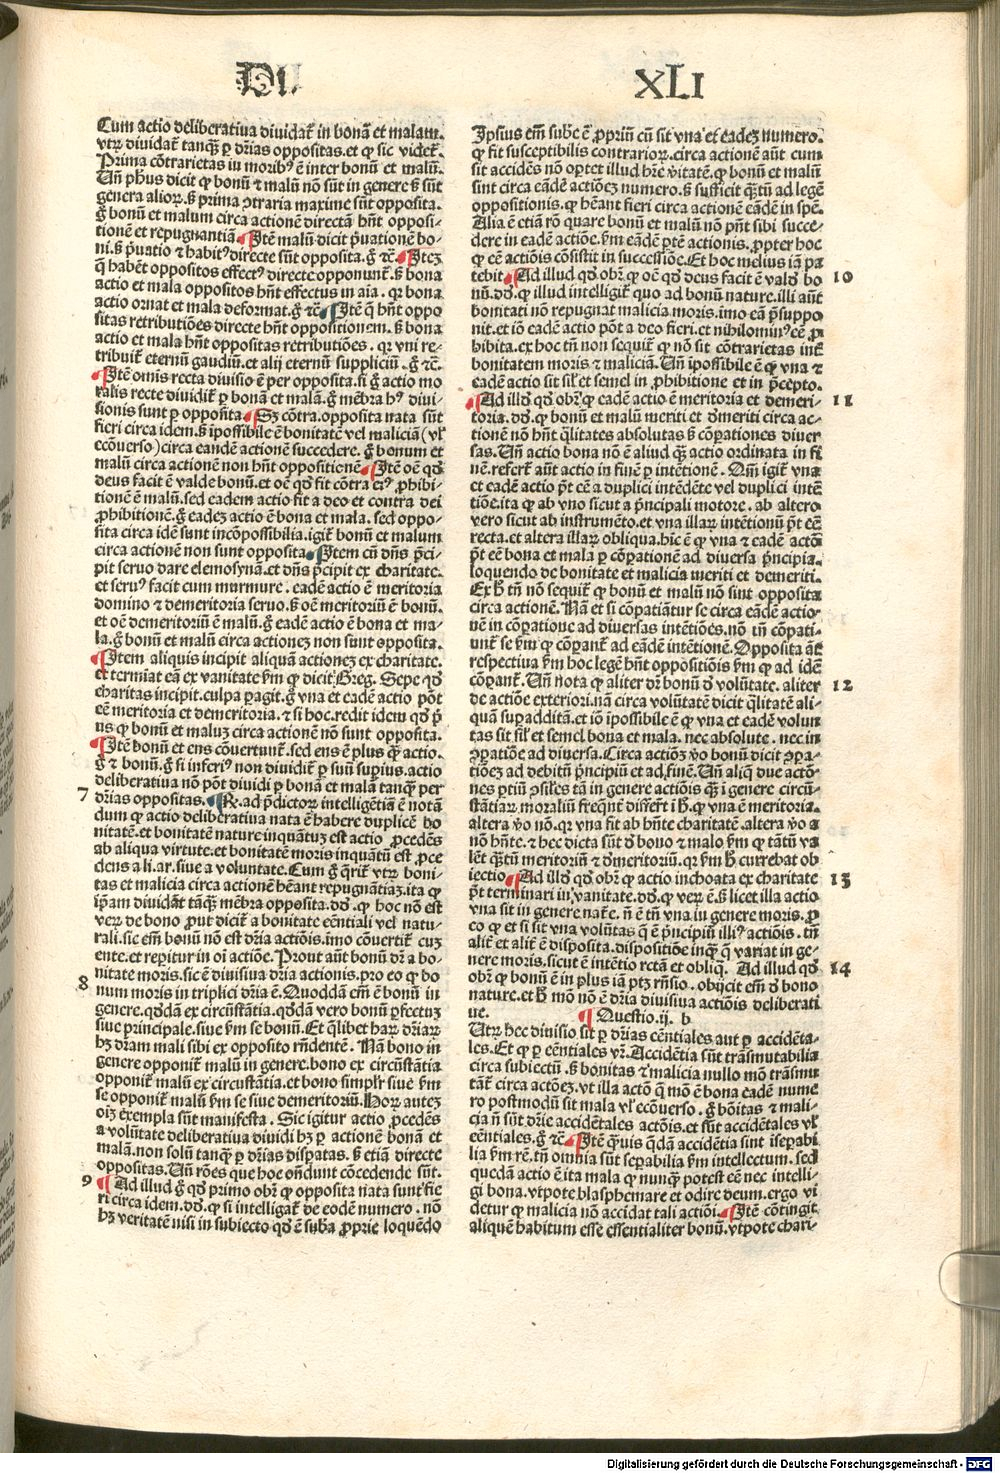 DI.
XLI
Cum actio deliberatiua diuidat᷑ in bonā et malam.
vtꝝ diuidat᷑ tanq̄ꝫ ꝑ dr̄ias oppositas. et ꝙ sic videt᷑.
Prima cōtrarietas iu moribꝰ ē inter bonū et malū.
Uñ ph̄us dicit ꝙ bonū ⁊ malū nō sūt in genere sꝫ sūt
genera alioꝝ. sꝫ prima ꝯtraria maxime sūt opposita.
g̊ bonū et malum circa actionē directā hn̄t opposi-
tionē et repugnantiā. Itē malū dicit p̄uationē bo-
ni. sꝫ p̄uatio ⁊ habitꝰ directe sūt opposita. g̊ ⁊c̄. Itēꝫ
q̄ habēt oppositos effectꝰ directe opponunt᷑. sꝫ bona
actio et mala oppositos hn̄t effectus in aīa. qꝛ bona
actio ornat et mala deformat. g̊ ⁊c̄. Itē q̄ hn̄t oppo
sitas retributiōes directe hn̄t oppositionem. sꝫ bona
actio et mala hn̄t oppositas retributiōes. qꝛ vni re-
tribuit᷑ eternū gaudiū. et alij eternū suppliciū. g̊ ⁊c̄.
Itē om̄is recta diuisio ē per opposita. si g̊ actio mo
ralis recte diuidit᷑ ꝑ bonā et malā. g̊ mēbra hꝰ diui-
sionis sunt ꝑ opposita. Sꝫ cōtra. opposita nata sūt
fieri circa idem. sꝫ īpossibile ē bonitatē vel maliciā (vl̓
ecōuerso) circa eandē actionē succedere. g̊ bonum et
malū circa actionē non hn̄t oppositionē. Itē oē qd̓
deus facit ē valde bonū. et oē qd̓ fit cōtra eiꝰ ꝓhibi-
tionē ē malū. sed eadem actio fit a deo et contra dei
ꝓhibitionē. g̊ eadeꝫ actio ē bona et mala. sed oppo-
sita circa idē sunt incōpossibilia. igit᷑ bonū et malum
circa actionē non sunt opposita. Item cū dn̄s p̄ci-
pit seruo dare elemosynā. et dn̄s p̄cipit ex charitate.
et seruꝰ facit cum murmure. eadē actio ē meritoria
domino ⁊ demeritoria seruo. sꝫ oē meritoriū ē bonū.
et oē demeritoriū ē malū. g̊ eadē actio ē bona et ma-
la. g̊ bonū et malū circa actioneꝫ non sunt opposita.
Item aliquis incipit aliquā actioneꝫ ex charitate.
et termiat eā ex vanitate ẜm ꝙ dicit Greg. Sepe qd̓
charitas incipit. culpa ꝑagit. g̊ vna et eadē actio pōt
eē meritoria et demeritoria. ⁊ si hoc. redit idem qd̓ p̄
us ꝙ bonū et maluꝫ circa actionē nō sunt opposita.
Itē bonū et ens cōuertunt᷑. sed ens ē plus ꝙ̄ actio.
g̊ ⁊ bonū. g̊ si inferiꝰ non diuidit᷑ ꝑ suū supius. actio
deliberatiua nō pōt diuidi ꝑ bonā et malā tanq̄ꝫ per
7
dr̄ias oppositas. R̄. ad p̄dictoꝝ intelligētiā ē notā
dum ꝙ actio deliberatiua nata ē habere duplicē bo
nitatē. et bonitatē nature inquātuꝫ est actio ꝓcedēs
ab aliqua virtute. et bonitatem moris inquātū est ꝓce
dens a li. ar. siue a voluntate. Cum g̊ q̄rit᷑ vtꝝ boni-
tas et malicia circa actionē hēant repugnātiaꝫ. ita ꝙ
ip̄am diuidāt tāq̄ꝫ mēbra opposita. dd̓. ꝙ hoc nō est
verꝝ de bono ꝓut dicit᷑ a bonitate eēntiali vel natu-
rali. sic em̄ bonū nō est dr̄ia actiōis. imo cōuertit᷑ cuꝫ
ente. et reꝑitur in oī actiōe. Prout aūt bonū dr̄ a bo-
nitate moris. sic ē diuisiua dr̄ia actionis. pro eo ꝙ bo
8
num moris in triplici dr̄ia ē. Quoddā em̄ ē bonū in
genere. qd̓dā ex circūstātia. qd̓dā vero bonū ꝑfectuꝫ
siue principale. siue ẜm se bonū. Et q̄libet haꝝ dr̄iaꝝ
hꝫ dr̄am mali sibi ex opposito rn̄dentē. Nā bono in
genere opponit᷑ malū in genere. bono ex circūstātia
opponit᷑ malū ex circustātia. et bono simplr̓ siue ẜm
se opponit᷑ malū ẜm se siue demeritoriū. Hoꝝ auteꝫ
oīꝫ exempla sūt manifesta. Sic igitur actio ꝓcedēs
a volūtate deliberatiua diuidi hꝫ ꝑ actionē bonā et
malā. non solū tanq̄ꝫ ꝑ dr̄ias disp̄atas. sꝫ etiā directe
oppositas. Uñ rōes que hoc on̄dunt cōcedende sūt.
9
Ad illud g̊ qd̓ primo obr̓ ꝙ opposita nata sunt fie
ri circa idem. dd̓. ꝙ si intelligat᷑ de eodē numero. nō
hꝫ veritatē nisi in subiecto qd̓ ē suba ꝓprie loquēdo
Ipsius em̄ sube ē ꝓpriū cū sit vna et eadeꝫ numero.
ꝙ fit susceptibilis contrarioꝝ. circa actionē aūt cum
sit accidēs nō oꝑtet illud hr̄e v̓itatē. ꝙ bonū et malū
sint circa eādē actiōeꝫ numero. sꝫ sufficit q̄ꝫtū ad legē
oppositionis. ꝙ hēant fieri circa actionē eādē in spē.
Alia ē etiā rō quare bonū et malū nō pn̄t sibi succe-
dere in eadē actiōe. ẜm eādē ꝑtē actionis. ꝓpter hoc
ꝙ eē actiōis cōsistit in successiōe. Et hoc melius iā pa
10
tebit. Ad illud qd̓ obr̓. ꝙ oē qd̓ deus facit ē valde bo
nū. dd̓. ꝙ illud intelligit᷑ quo ad bonū nature. illi aūt
bonitati nō repugnat malicia moris. imo eā p̄suppo
nit. et iō eadē actio pōt a deo fieri. et nihilominꝰ eē ꝓ
hibita. ex hoc tn̄ non sequit᷑ ꝙ nō sit cōtrarietas int̓
bonitatem moris ⁊ maliciā. Uñ īpossibile ē ꝙ vna ⁊
eadē actio sit sil̓ et semel in ꝓhibitione et in p̄cepto.
11
Ad illd̓ qd̓ obr̓. ꝙ eadē actio ē meritoria et demeri-
toria. dd̓. ꝙ bonū et malū meriti et d̓meriti circa ac-
tionē nō hn̄t q̄litates absolutas sꝫ cōꝑationes diuer
sas. Uñ actio bona nō ē aliud q̄ꝫ actio ordinata in fi
nē. refert᷑ aūt actio in finē ꝑ intētionē. Qm̄ igit᷑ vna
et eadē actio p̄t eē a duplici intēdēte vel duplici intē
tiōe. ita ꝙ ab vno sicut a p̄ncipali motore. ab altero
vero sicut ab instrumēto. et vna illaꝝ intētionū p̄t eē
recta. et altera illaꝝ obliqua. hīc ē ꝙ vna ⁊ eadē actō
p̄t eē bona et mala ꝑ cōꝑationē ad diuersa p̄ncipia.
loquendo de bonitate et malicia meriti et demeriti.
Ex hꝫ tn̄ nō sequit᷑ ꝙ bonū et malū nō sint opposita
circa actionē. Nā et si cōpatiātur se circa eādē actio-
nē in cōꝑatione ad diuersas intētiōes. nō tn̄ cōpati-
unt᷑ se ẜm ꝙ cōꝑant᷑ ad eādē intētionē. Opposita aūt
respectiua ẜm hoc legē hn̄t oppositiōis ẜm ꝙ ad idē
12
cōꝑant᷑. Uñ nota ꝙ aliter dr̄ bonū d̓ volūtate. aliter
de actiōe exteriori. nā circa volūtatē dicit q̄litatē ali-
quā suꝑadditā. et iō īpossibile ē ꝙ vna et eadē volun
tas sit sil̓ et semel bona et mala. nec absolute. nec in
ꝯꝑatiōe ad diuersa. Circa actiōꝫ v̓o bonū dicit ꝯꝑa-
tiōeꝫ ad debitū p̄ncipiū et ad finē. Uñ aliq̄ due actō-
nes ꝑtiū ꝯsil̓es tā in genere actiōis q̄ꝫ ī genere circū-
stātiaꝝ moraliū freq̄nt̓ differūt ī hꝫ. ꝙ vna ē meritoria.
altera v̓o nō. qꝛ vna fit ab hn̄te charitatē. altera v̓o a
nō hn̄te. ⁊ hec dicta sūt d̓ bono ⁊ malo ẜm ꝙ tātū va
lēt q̄ꝫtū meritoriū ⁊ d̓meritoriū. qꝛ ẜm hꝫ currebat ob
13
iectio. Ad illd̓ qd̓ obr̓ ꝙ actio inchoata ex charitate
p̄t terminari in vanitate. dd̓. ꝙ verꝝ ē. sꝫ licet illa actio
vna sit in genere nat᷑e. n̄ ē tn̄ vna iu genere moris. ꝓ
eo ꝙ et si sit vna volūtas q̄ ē p̄ncipiū illiꝰ actiōis. tn̄
alit̓ et alit̓ ē disposita. dispositiōe inq̄ꝫ q̄ variat in ge-
14
nere moris. sicut ē intētio rctā et obliq̄. Ad illud qd̓
obr̓ ꝙ bonū ē in plus iā ptꝫ rn̄sio. obijcit em̄ d̓ bono
nature. et hꝫ mō nō ē dr̄ia diuisiua actiōis deliberati
ue. Questio. ij. b
Utꝝ hec diuisio sit ꝑ dr̄ias eēntiales aut ꝑ accidēta-
les. Et ꝙ ꝑ eēntiales vr̄. Accidētia sūt trāsmutabilia
circa subiectū. sꝫ bonitas ⁊ malicia nullo mō trāsmu
tāt᷑ circa actōeꝫ. vt illa actō q̄ mō ē bona eadē nume
ro postmodū sit mala vl̓ ecōuerso. g̊ bōitas ⁊ mali-
cia n̄ sūt dr̄ie accidētales actōis. et sūt accidētales vl̓
eēntiales. g̊ ⁊c̄. Itē q̄uis q̄dā accidētia sint īseꝑabi
lia ẜm rē. tn̄ omnia sūt seꝑabilia ẜm intellectum. sed
quedā actio ē ita mala ꝙ nunq̄ꝫ potest eē nec intelli-
gi bona. vtpote blasphemare et odire deum. ergo vi
detur ꝙ malicia nō accidat tali actiōi. Itē cōtingit
aliquē habitum esse essentialiter bonū. vtpote chari-
Digitalisierung gefördert durch die Deutsche Forschungsgemeinschaft - DFG